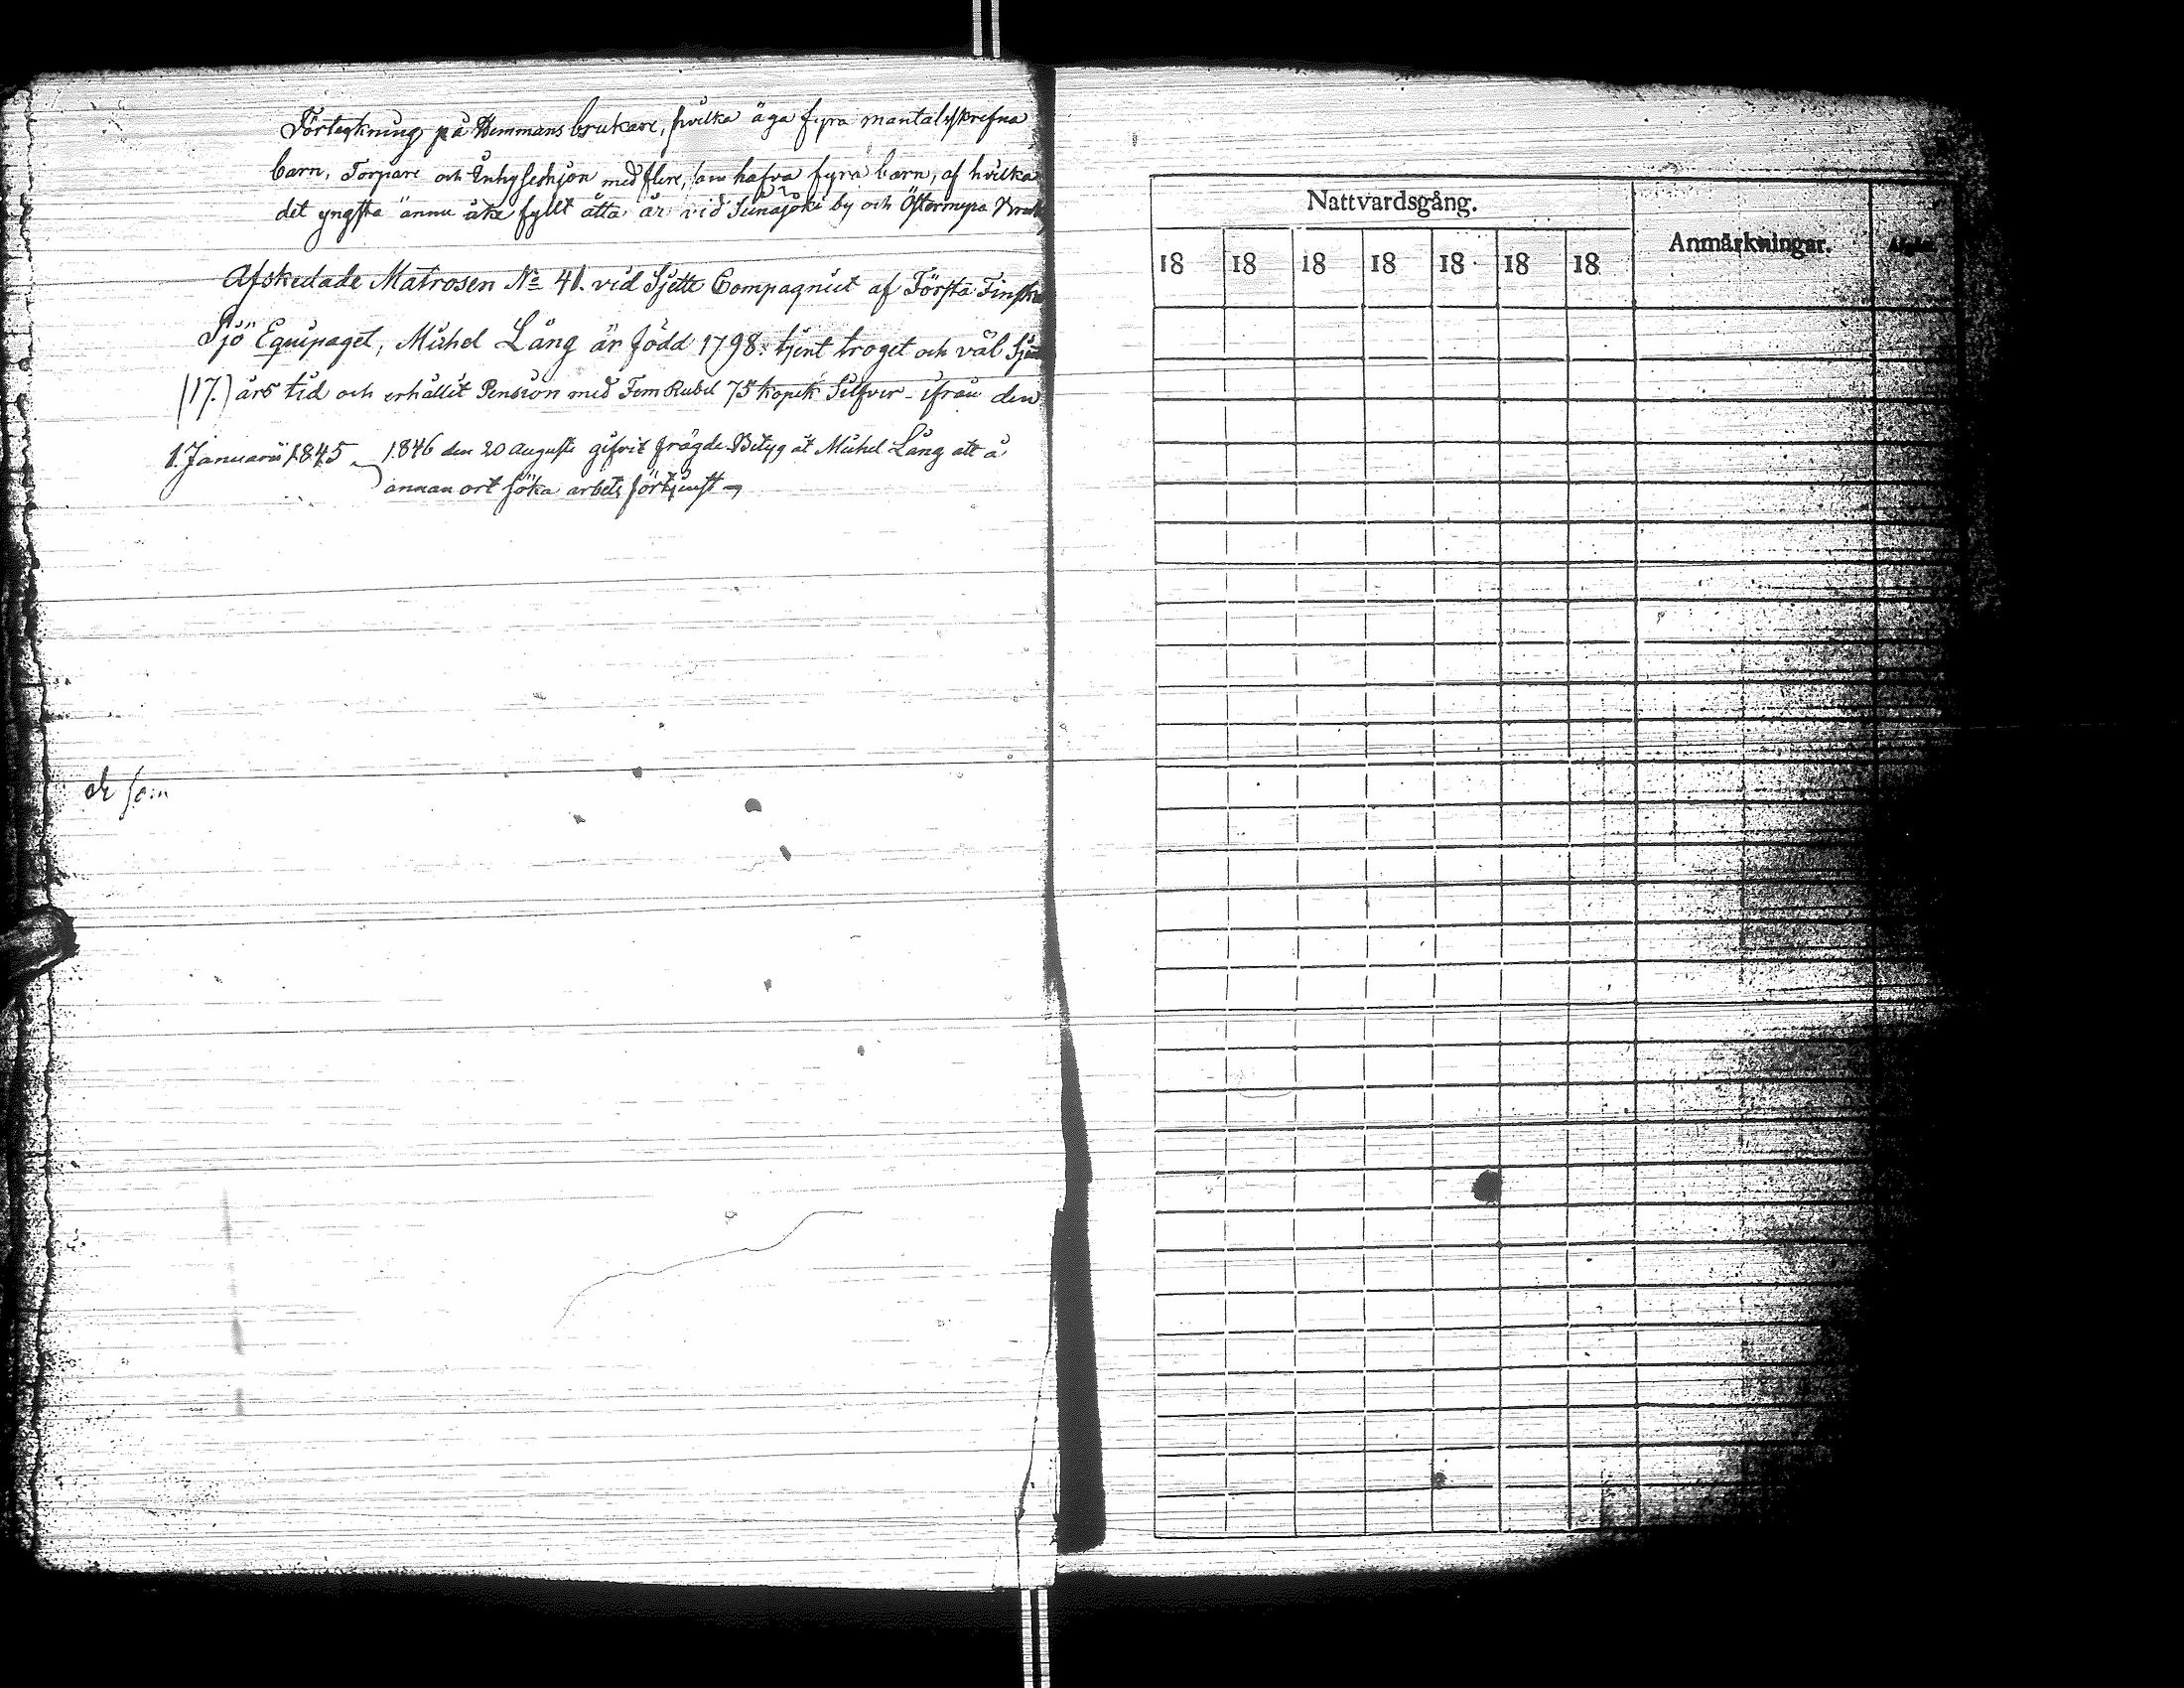 Förtekning på Hemmans brukare, hvilka äga fyra mantalsskrefna
barn, Torpare och Inhyseshjon med flere, som hafva fyra barn, af hvilka
det yngsta ännu icke fyllt åtta år vid Seinäjoki by och Östermyra Bruk
Afskedade Matrosen No 41. vid Sjette Compagniet af Första Finska
Sjö Equipaget, Michel Lång är född 1798. tjent troget och väl
(17.) års tid och erhållit Pension med Fem Rubel 75 kopek Silfver ifrån den
1. Januarii 1845 1846 den 20 Augusti gifvit frägde Betyg åt Michel Lång att å
annan ort söka arbets förtjenst
som
Nattvardsgång.
Anmärkningar.
18 18 18 18 18 18 18